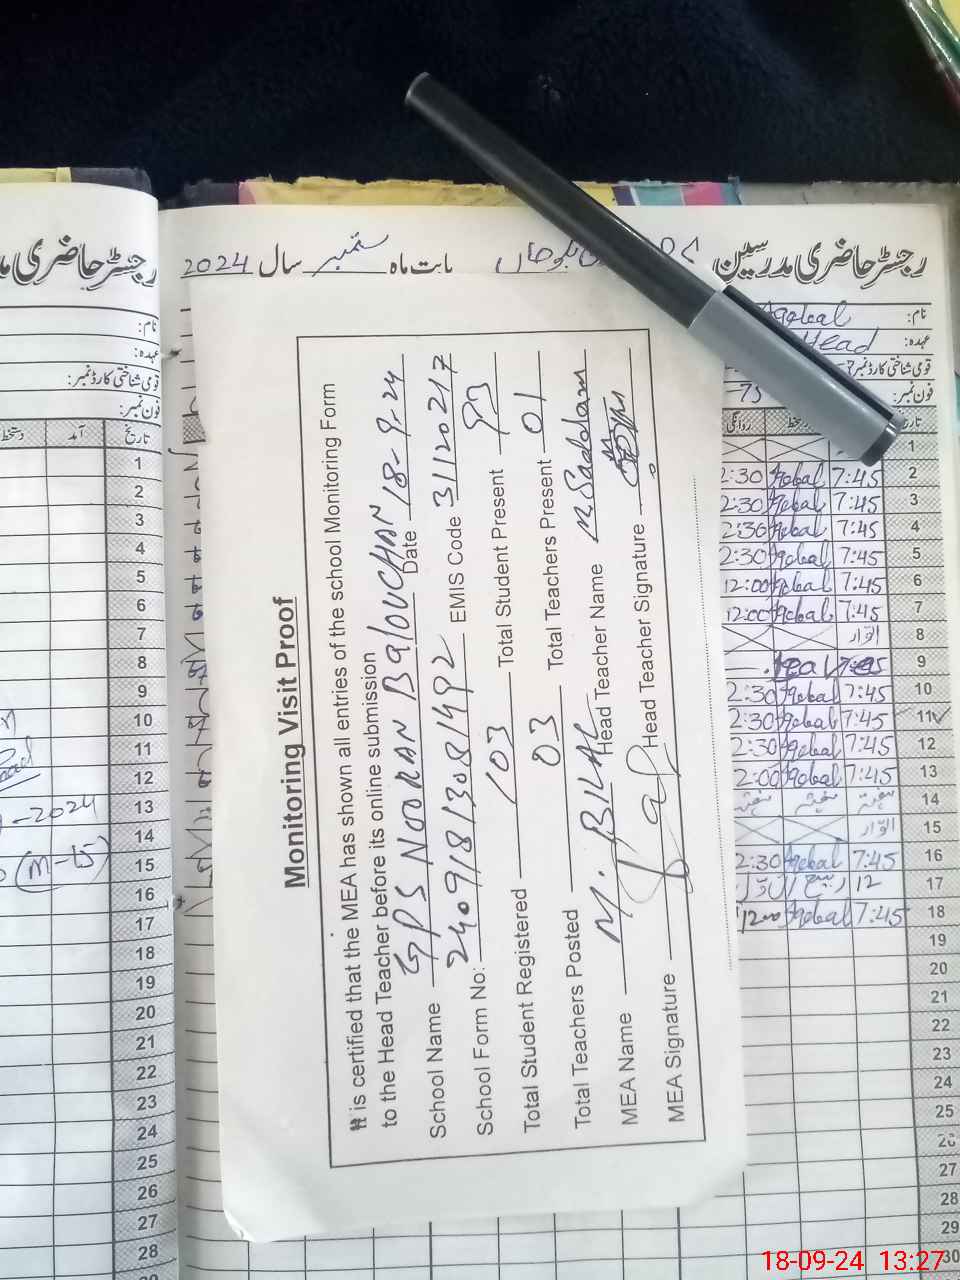 رجسٹر حاضری مدرسین
بابت ماہ ستمبر سال 2024
نام: Iqbal
عہدہ: Head
قومی شناختی کارڈ نمبر:
فون نمبر:
تاریخ
روانگی
1
2 7:45 Iqbal 2:30
3 7:45 Iqbal 2:30
4 7:45 Iqbal 2:30
5 7:45 Iqbal 2:30
6 7:45 Iqbal 12:00
7 7:45 Iqbal 12:00
8 اتوار
9 leave
10 7:45 Iqbal 2:30
11 7:45 Iqbal 2:30
12 7:45 Iqbal 2:30
13 7:45 Iqbal 2:00
14
15 اتوار
16 7:45 Iqbal 2:30
17 12 ربیع الاول
18 7:45 Iqbal 1200
19
20
21
22
23
24
25
26
27
28
29
30
Monitoring Visit Proof
It is certified that the MEA has shown all entries of the school Monitoring Form
to the Head Teacher before its online submission
School Name GPS NOORAN BalOUCHAN Date 18-9-24
School Form No: 24091813081492 EMIS Code 31120217
Total Student Registered 103 Total Student Present
Total Teachers Posted 03 Total Teachers Present 01
MEA Name M. BILAL Head Teacher Name M Saddam
MEA Signature Head Teacher Signature
رجسٹر حاضری
نام:
عہدہ:
قومی شناختی کارڈ نمبر:
فون نمبر:
تاریخ آمد دستخط
1
2
3
4
5
6
7
8
9
10
11
12
13 -2024
14
15 (M-15)
16
17
18
19
20
21
22
23
24
25
26
27
28
18-09-24 13:27